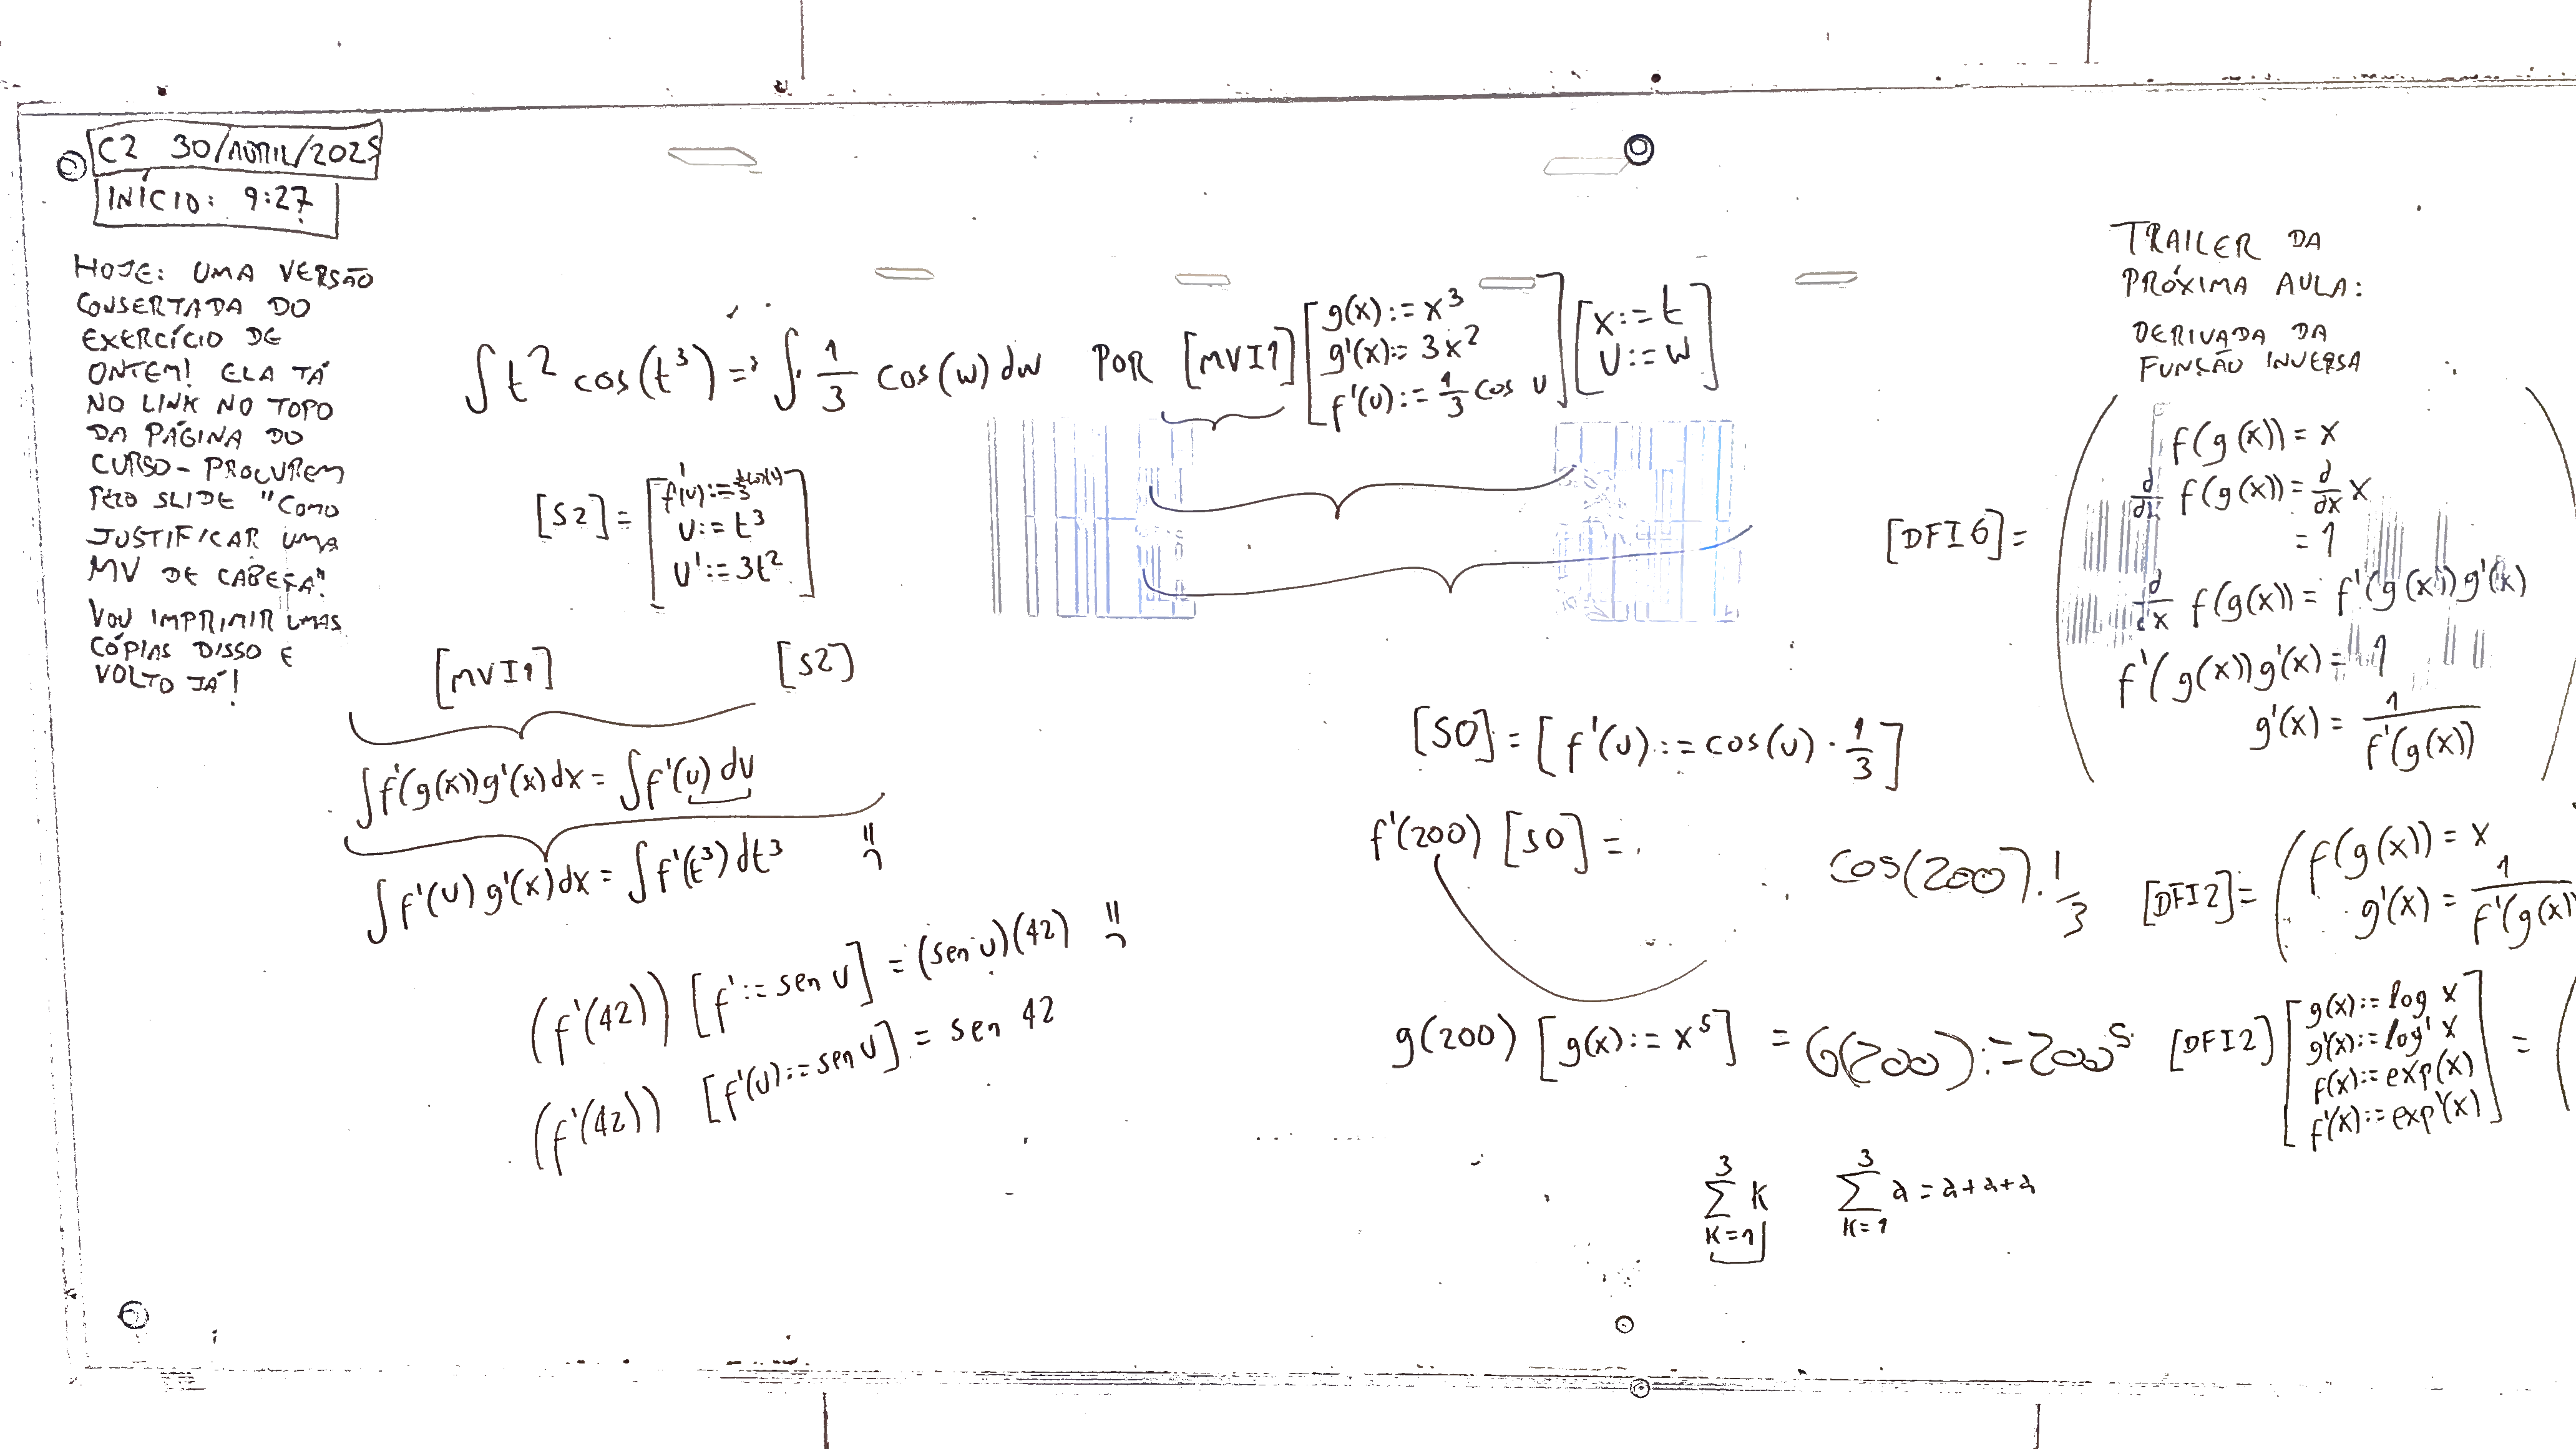 C2 30/ABRIL/2025
INÍCIO: 9:27
HOJE: UMA VERSÃO
CONSERTADA DO
EXERCÍCIO DE
ONTEM! ELA TÁ
NO LINK NO TOPO
DA PÁGINA DO
CURSO – PROCUREM
PELO SLIDE "COMO
JUSTIFICAR UMA
MV DE CABEÇA".
VOU IMPRIMIR UMAS
CÓPIAS DISSO E
VOLTO JÁ!
∫ t² cos(t³) = ∫ 1/3 cos(w) dw POR [MVI1] [g(x) := x³
g'(x) := 3x²
f'(u) := 1/3 cos u] [x := t
u := w]
[S2] = [f'(u) := 1/3 cos(u)
u := t³
u' := 3t²]
[MVI1] [S2]
∫ f'(g(x)) g'(x) dx = ∫ f'(u) du
∫ f'(u) g'(x) dx = ∫ f'(t³) dt³
(f'(42)) [f' := sen u] = (sen u)(42)
(f'(42)) [f'(u) := sen u] = sen 42
[S0] = [f'(u) := cos(u) · 1/3]
f'(200) [S0] = cos(200) · 1/3
g(200) [g(x) := x⁵] = G(200) := 200⁵
∑ k=1 3 k
∑ k=1 3 a = a+a+a
TRAILER DA
PRÓXIMA AULA:
DERIVADA DA
FUNÇÃO INVERSA
[DFI6] = (f(g(x)) = x
d/dx f(g(x)) = d/dx x
= 1
d/dx f(g(x)) = f'(g(x)) g'(x)
f'(g(x)) g'(x) = 1
g'(x) = 1/f'(g(x)))
[DFI2] = (f(g(x)) = x
g'(x) = 1/f'(g(x))
[DFI2] [g(x) := log x
g'(x) := log' x
f(x) := exp(x)
f'(x) := exp'(x)] = (